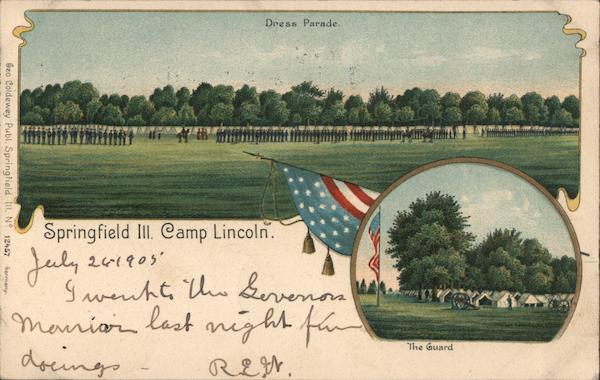 Dress Parade.
Geo Coldewey Publ. Springfield Ill. No 12457 Germany.
Springfield Ill. Camp Lincoln.
July 26 1905
I went to the Govenors
Mansion last night fun
doeings -
R.E.W.
The Guard